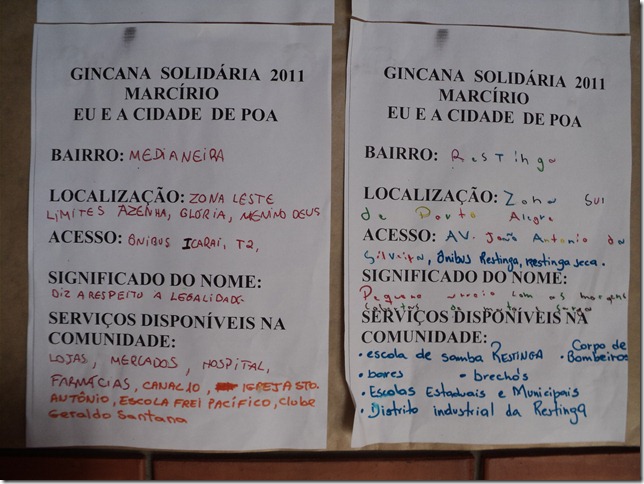 GINCANA SOLIDÁRIA 2011
MARCÍRIO
EU E A CIDADE DE POA
BAIRRO: MEDIANEIRA
LOCALIZAÇÃO: ZONA LESTE
LIMITES AZENHA, GLÓRIA, MENINO DEUS
ACESSO: ÔNIBUS ICARAÍ, T2,
SIGNIFICADO DO NOME:
DIZ A RESPEITO A LEGALIDADE
SERVIÇOS DISPONÍVEIS NA
COMUNIDADE:
LOJAS, MERCADOS, HOSPITAL,
FARMÁCIAS, CANAL 10, IGREJA STO.
ANTÔNIO, ESCOLA FREI PACÍFICO, Clube
Geraldo Santana
GINCANA SOLIDÁRIA 2011
MARCÍRIO
EU E A CIDADE DE POA
BAIRRO: Restinga
LOCALIZAÇÃO: Zona Sul
de Porto Alegre
ACESSO: AV. João Antonio da
Silveira, Ônibus Restinga, restinga seca.
SIGNIFICADO DO NOME:
Pequeno arroio com as margens
SERVIÇOS DISPONÍVEIS NA
COMUNIDADE:
• escola de samba RESTINGA Corpo de Bombeiros
• bares • brechós
• Escolas Estaduais e Municipais
• Distrito industrial da Restinga